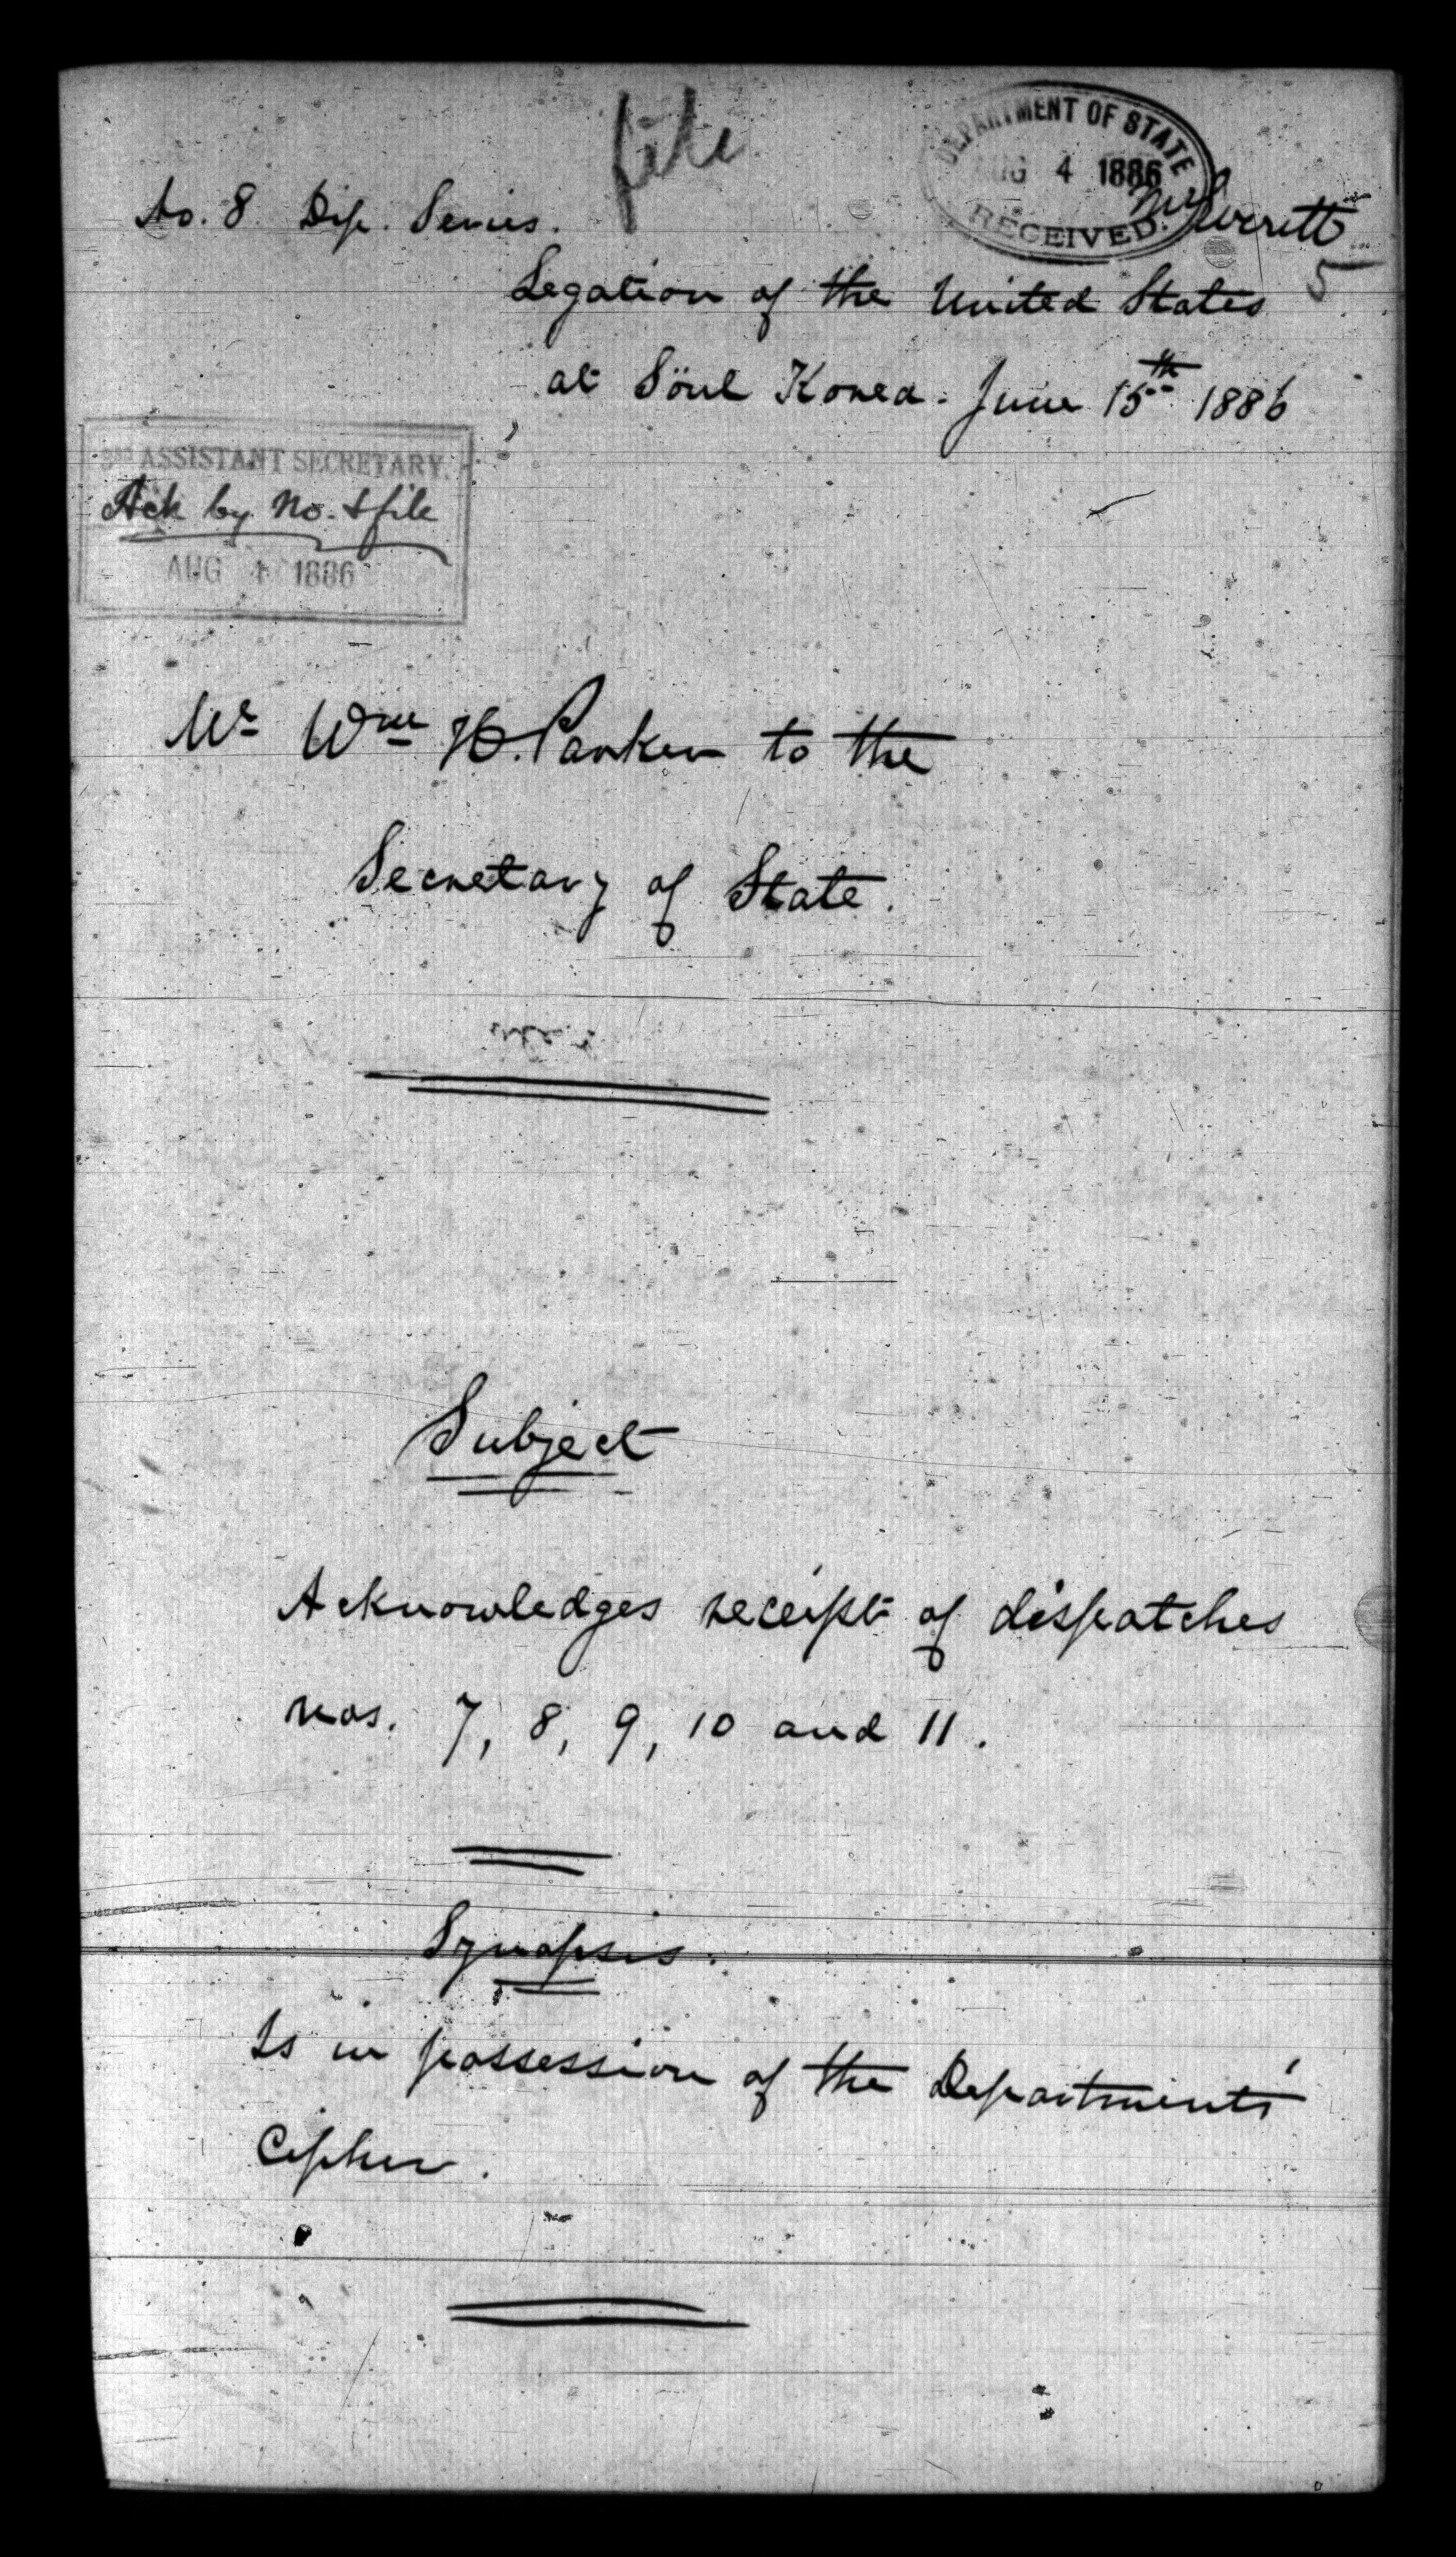 file
DEPARTMENT OF STATE
AUG 4 1886
RECEIVED.
Mr Everett
5
No. 8 Dip. Series.
Legation of the United States
at Söul Korea. June 15th 1886
3RD ASSISTANT SECRETARY.
Ack by No. & file
AUG 4 1886
Mr Wm H. Parker to the
Secretary of State.
Subject
Acknowledges receipt of dispatches
nos. 7, 8, 9, 10 and 11.
Synopsis.
Is in possession of the Departments'
Cipher.